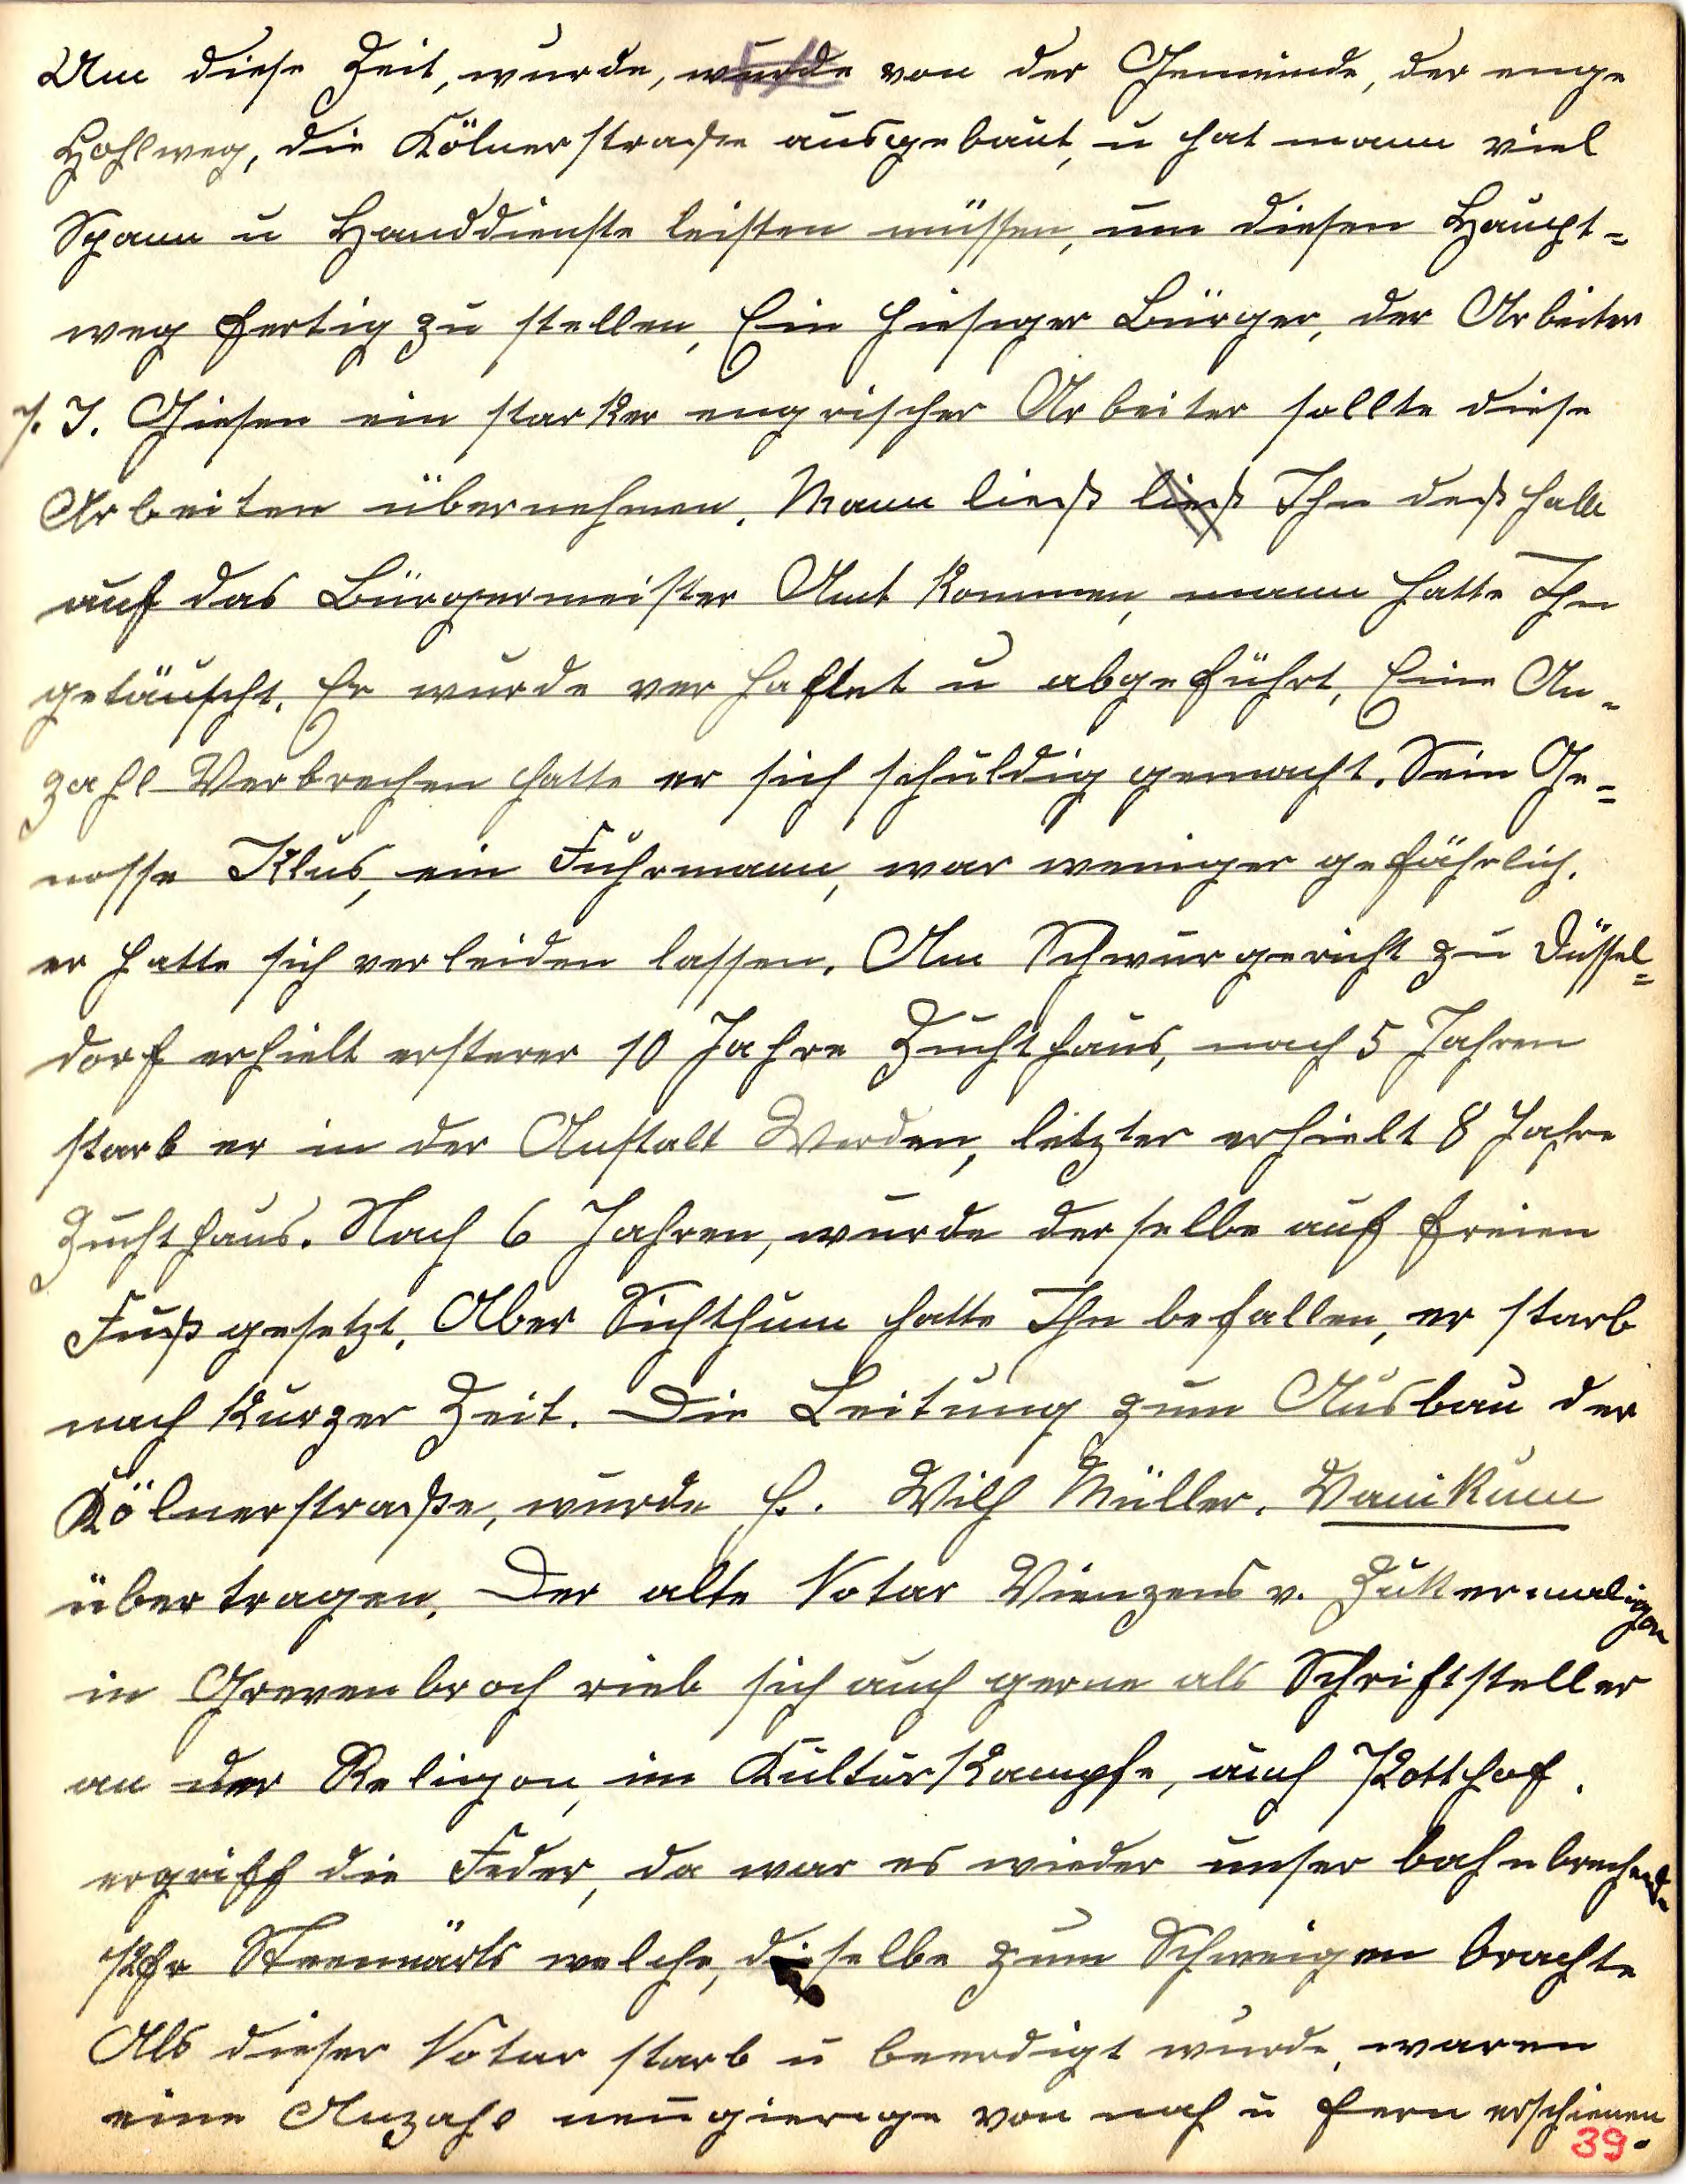 Um diese Zeit, wurde, wurde von der Gemeinde, der enge
Hohlweg, die Kölnerstraße ausgebaut, u hat mann viel
Spann u Handdienste leisten müssen, um diesen Haupt=
weg fertig zu stellen, Ein hiesiger Bürger, der Arbeiter
J. J. Giesen ein starker energischer Arbeiter sollte diese
Arbeiten übernehmen. Mann ließ ließ Ihn deßhalb
auf das Bürgermeister Amt kommen, mann hatte Ihn
getäuscht. Er wurde verhaftet u abgeführt. Eine An=
zahl Verbrechen hatte er sich schuldig gemacht. Sein Ge=
nosse Klus, ein Fuhrmann, war weniger gefährlich.
er hatte sich verleiden lassen. Am Schwurgericht zu Düssel=
dorf erhielt ersterer 10 Jahre Zuchthaus, nach 5 Jahren
starb er in der Anstalt Werden, letzter erhielt 8 Jahre
Zuchthaus. Nach 6 Jahren, wurde derselbe auf freien
Fuß gesetzt. Aber Sichthum hatte Ihn befallen, er starb
nach kurzer Zeit. Die Leitung zum Ausbau der
Kölnerstraße, wurde H. Wilh Müller. Vanikum
übertragen. Der alte Notar Vienzens v.
in Grevenbroch rieb sich auch gerne als Schriftsteller
an der Religon, im Kulturkampfe, auch Potthof.
ergriff die Feder, da war es wieder unser bahnbrechende
Pfr welche, dieselbe zum Schweigen brachte
Als dieser Notar starb u beerdigt wurde, waren
eine Anzahl neugierige von nah u fern erschienen
39.